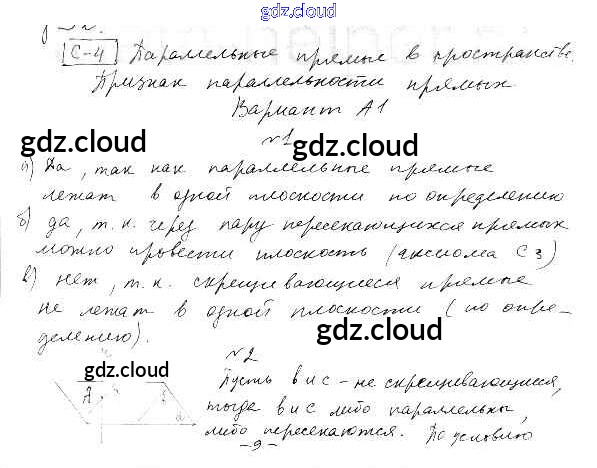 gdz.cloud
С-4 Параллельные прямые в пространстве.
Признак параллельности прямых
Вариант А1
gdz.cloud
№1
gdz.cloud
а) Да, так как параллельные прямые
лежат в одной плоскости по определению
б) да, т.к. через пару пересекающихся прямых
можно провести плоскость (аксиома С3)
в) нет, т.к. скрещивающиеся прямые
не лежат в одной плоскости (по опре-
делению).
gdz.cloud
№2
gdz.cloud
Пусть в и с - не скрещивающиеся,
тогда в и с либо параллельны,
либо пересекаются. По условию
-9-
gdz.cloud